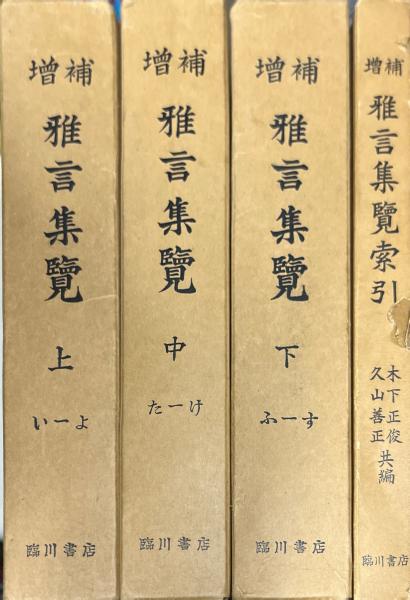 増補
雅言集覽
上
いーよ
臨川書店
増補
雅言集覽
中
たーけ
臨川書店
増補
雅言集覽
下
ふーす
臨川書店
増補
雅言集覽索引
木下正俊
久山善正
共編
臨川書店